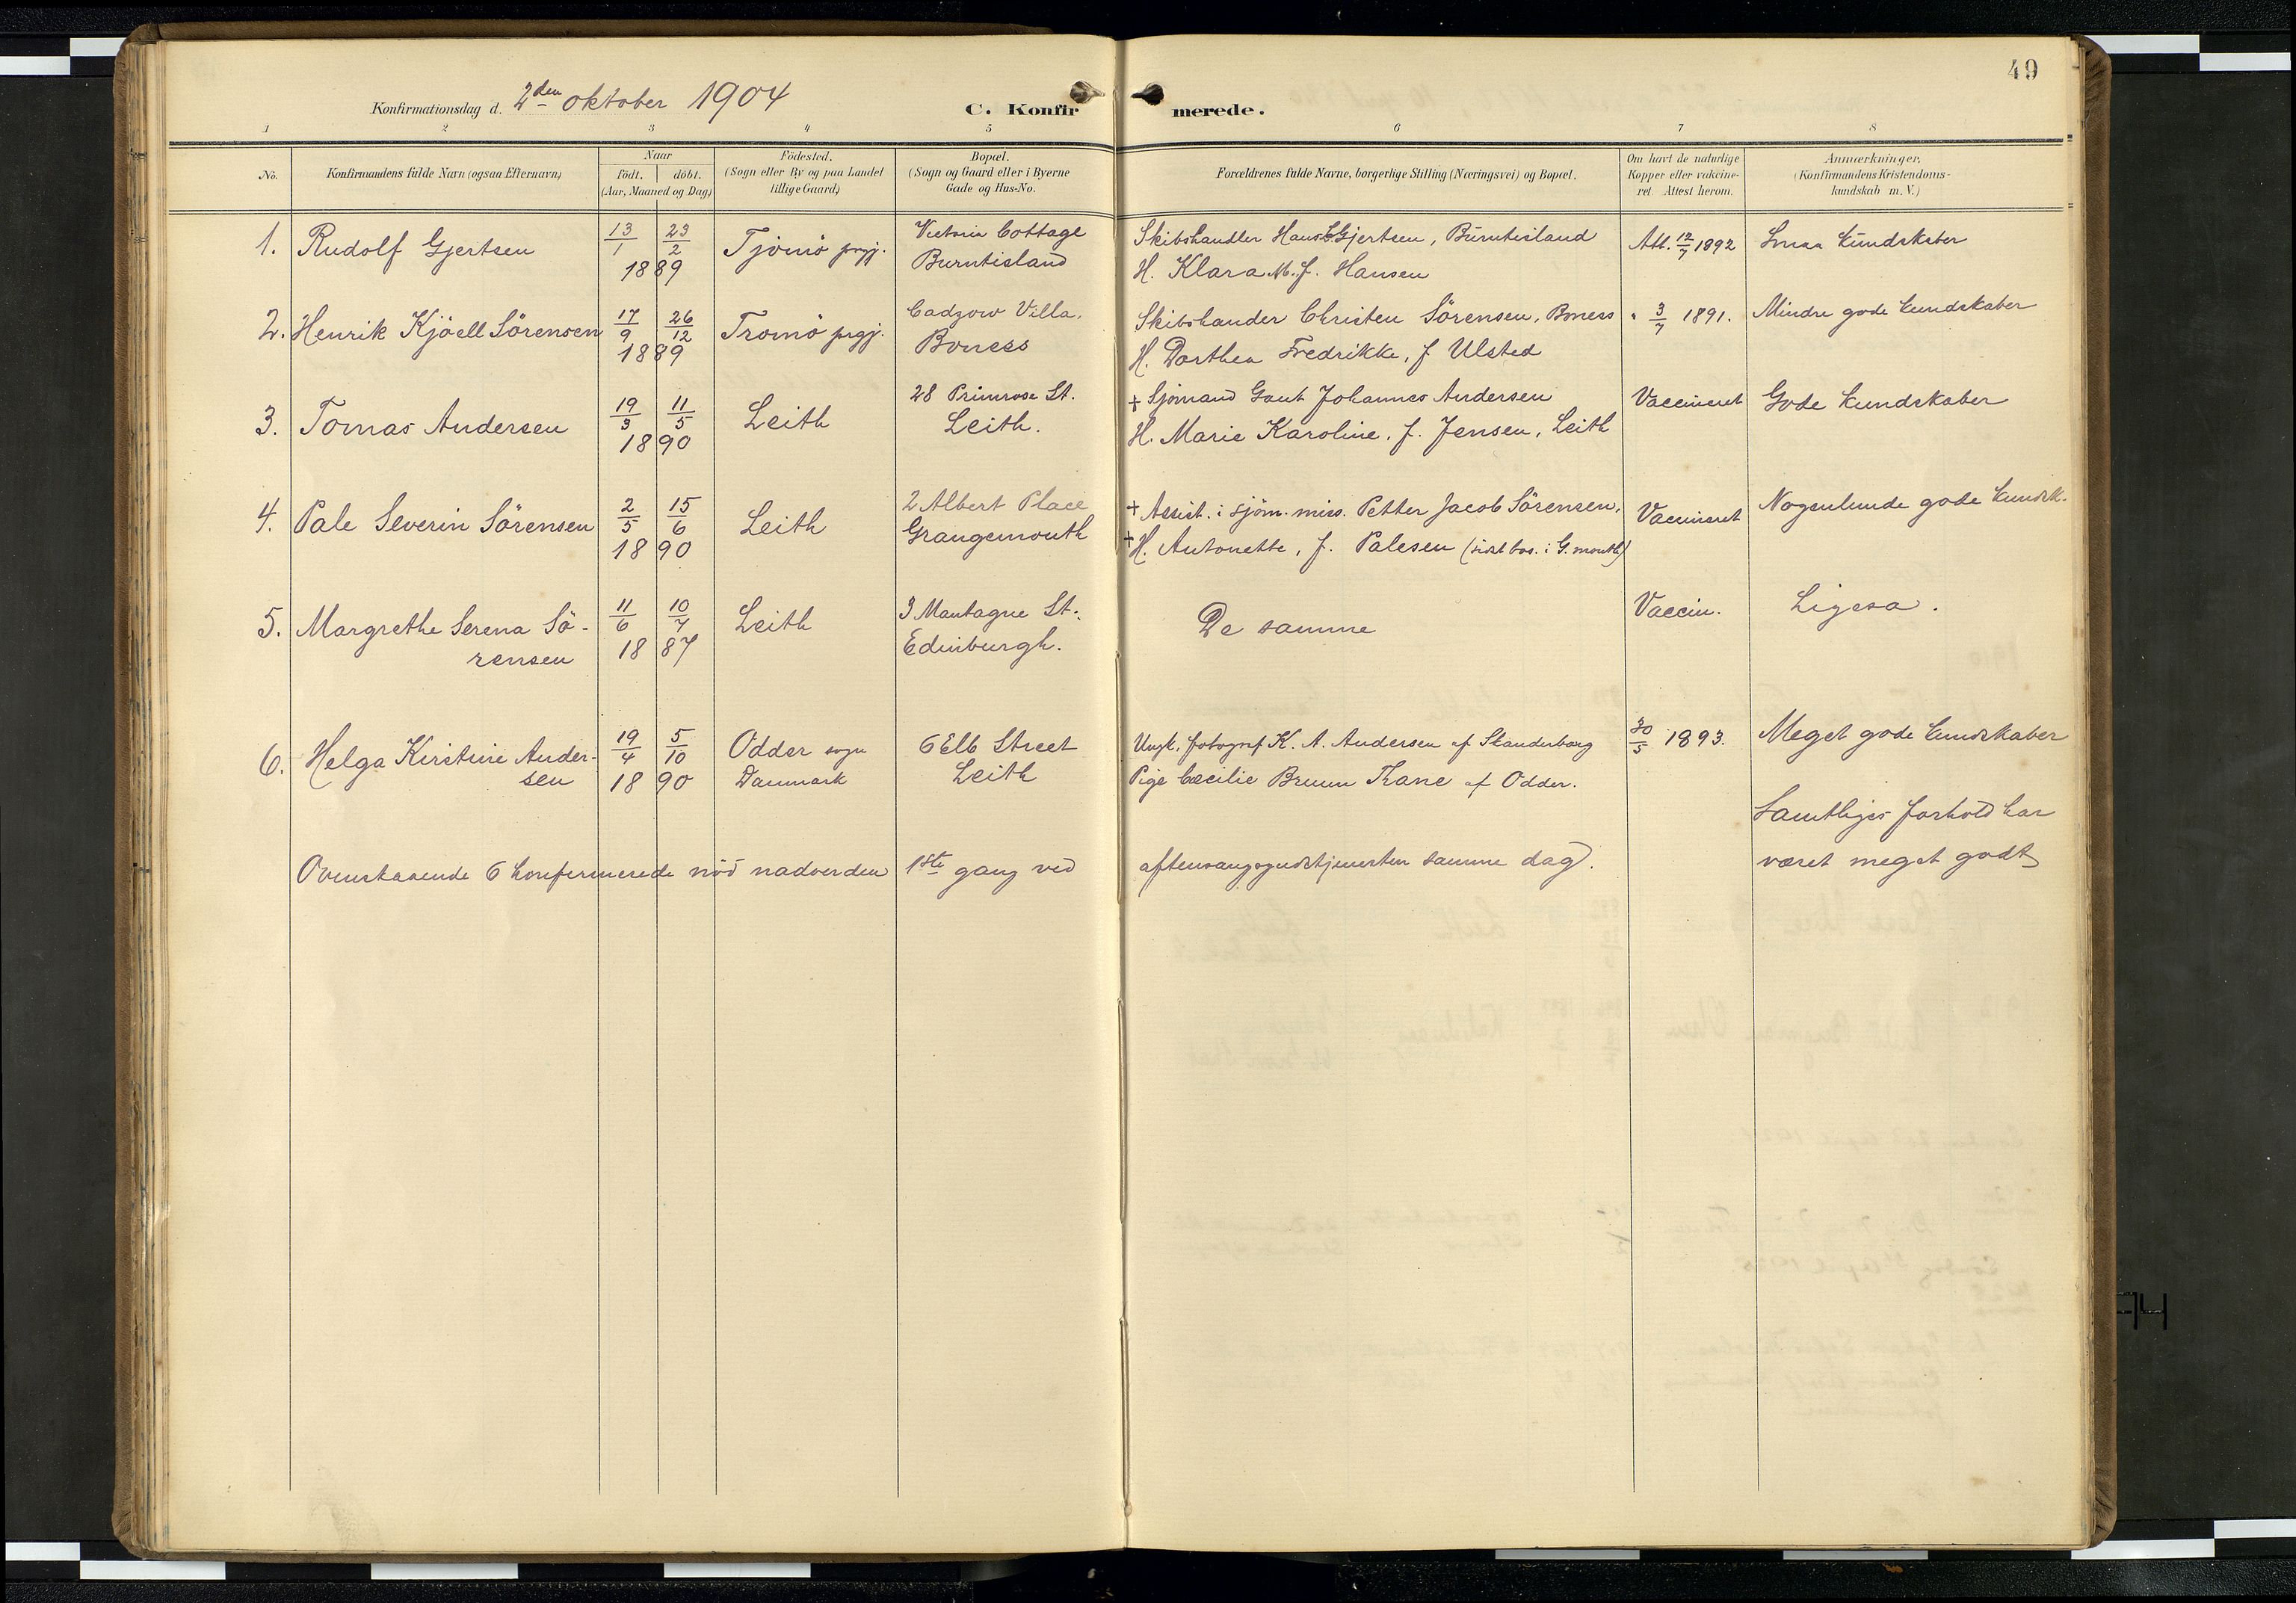 49
Konfirmationsdag d. 2den oktober 1904
C. Konfirmerede.
1 2 3 4 5 6 7 8
No.
Konfirmandens fulde Navn (ogsaa Efternavn)
Naar
födt. döbt.
(Aar, Maaned og Dag)
Födested.
(Sogn eller By og paa Landet
tillige Gaard)
Bopæl.
(Sogn og Gaard eller i Byerne
Gade og Hus-No.
Forældrenes fulde Navne, borgerlige Stilling (Næringsvei) og Bopæl.
Om havt de naturlige
Kopper eller vakcine-
ret. Attest herom.
Anmærkninger.
(Konfirmandens Kristendoms-
kundskab m. V.)
1. Rudolf Gjertsen
13/1 23/2
1889
Tjömö prgj.
Victoria Cottage
Burntisland
Skibshandler Hans Gjertsen, Burntisland
H. Klara M. f. Hansen
Att. 12/7 1892
Smaa kundskaber
2. Henrik Kjöell Sörensen
17/9 26/12
1889
Tromö prgj.
Cadzow Villa.
Boness
Skibshander Christen Sörensen, Boness
H. Dorthea Fredrikke, f Ulsted
" 3/7 1891.
Mindre gode kundskaber
3. Tomas Andersen
19/3 11/5
1890
Leith
28 Primrose St.
Leith.
+ Sjömand Gaut Johannes Andersen
H. Marie Karoline, f. Jensen, Leith
Vaccineret
Gode kundskaber
4. Pale Severin Sörensen
2/5 15/6
1890
Leith
2 Albert Place
Grangemouth
+ Assist. i sjöm. miss. Petter Jacob Sörensen,
+ H. Antonette, f. Palesen (sidst bos. i G. mouth)
Vaccineret
Nogenlunde gode kundsk.
5. Margrethe Serena Sö-
rensen
11/6 10/7
1887
Leith
3 Mantague St.
Edinburgh.
De samme
Vaccin.
Ligesa.
6. Helga Kirstine Ander-
sen
19/4 5/10
1890
Odder sogn
Danmark
6 Elb Street
Leith
Ungk. fotograf K. A. Andersen af Skanderborg
Pige Cæcilie Bruun Thane af Odder.
30/5 1893.
Meget gode kundskaber
Samtliges forhold har
været meget godt
Ovenstaaende 6 konfirmerede nöd nadverden 1ste gang ved aftensangsgudstjenesten samme dag.